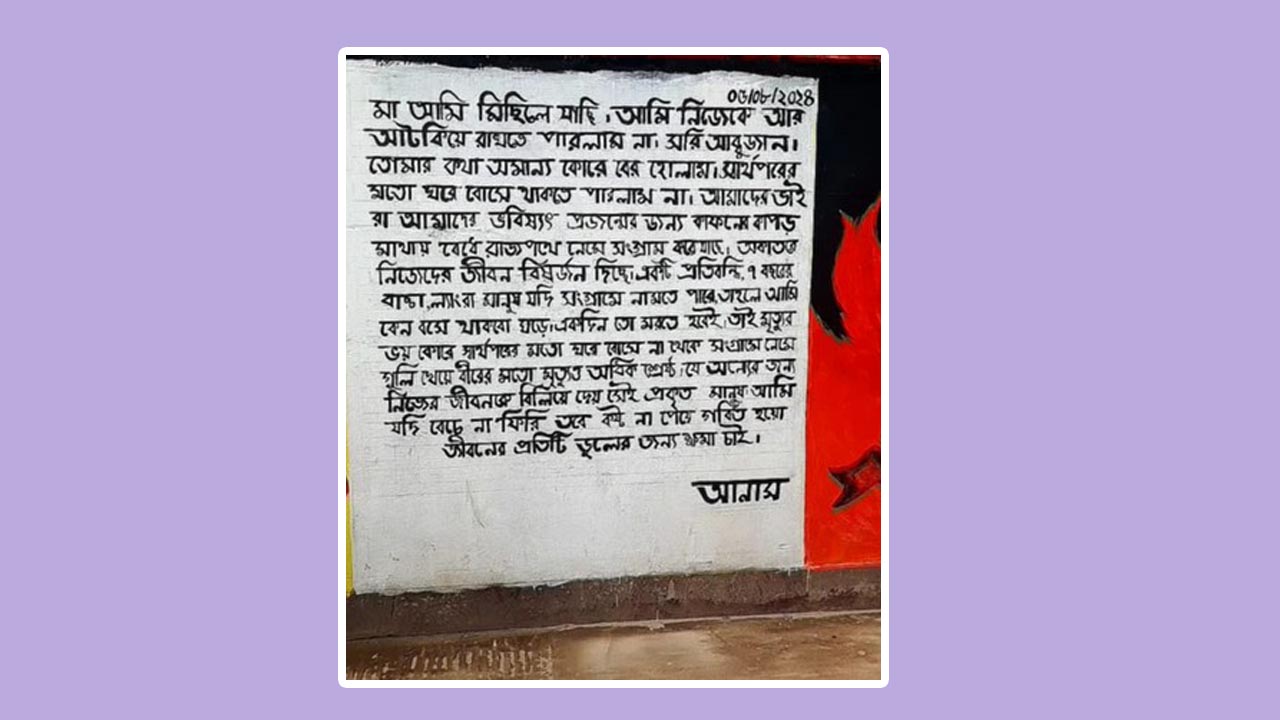 ০৫/০৮/২০২৪
মা আমি মিছিলে যাচ্ছি। আমি নিজেকে আর
আটকিয়ে রাখতে পারলাম না। সরি আব্বুজান।
তোমার কথা অমান্য কোরে বের হোলাম। সার্থপরের
মতো ঘরে বোসে থাকতে পারলাম না। আমাদের ভাই
রা আমাদের ভবিষ্যৎ প্রজন্মের জন্য কাফনের কাপড়
মাথায় বেধে রাজপথে নেমে সংগ্রাম করে যাচ্ছে। অকাতরে
নিজেদের জীবন বিষর্জন দিচ্ছে। একটি প্রতিবন্ধি, ৭ বছরের
বাচ্চা, ল্যাংরা মানুষ যদি সংগ্রামে নামতে পারে, তাহলে আমি
কেন বসে থাকবো ঘড়ে। একদিন তো মরতে হবেই। তাই মৃত্যুর
ভয় কোরে সার্থপরের মতো ঘরে বোসে না থেকে সংগ্রামে নেমে
গুলি খেয়ে বীরের মতো মৃত্যুও অধিক শ্রেষ্ঠ। যে অন্যের জন্য
নিজের জীবনকে বিলিয়ে দেয় সেই প্রকৃত মানুষ। আমি
যদি বেচে না ফিরি তবে কষ্ট না পেয়ে গর্বিত হয়ো
জীবনের প্রতিটি ভুলের জন্য ক্ষমা চাই।
আনাস